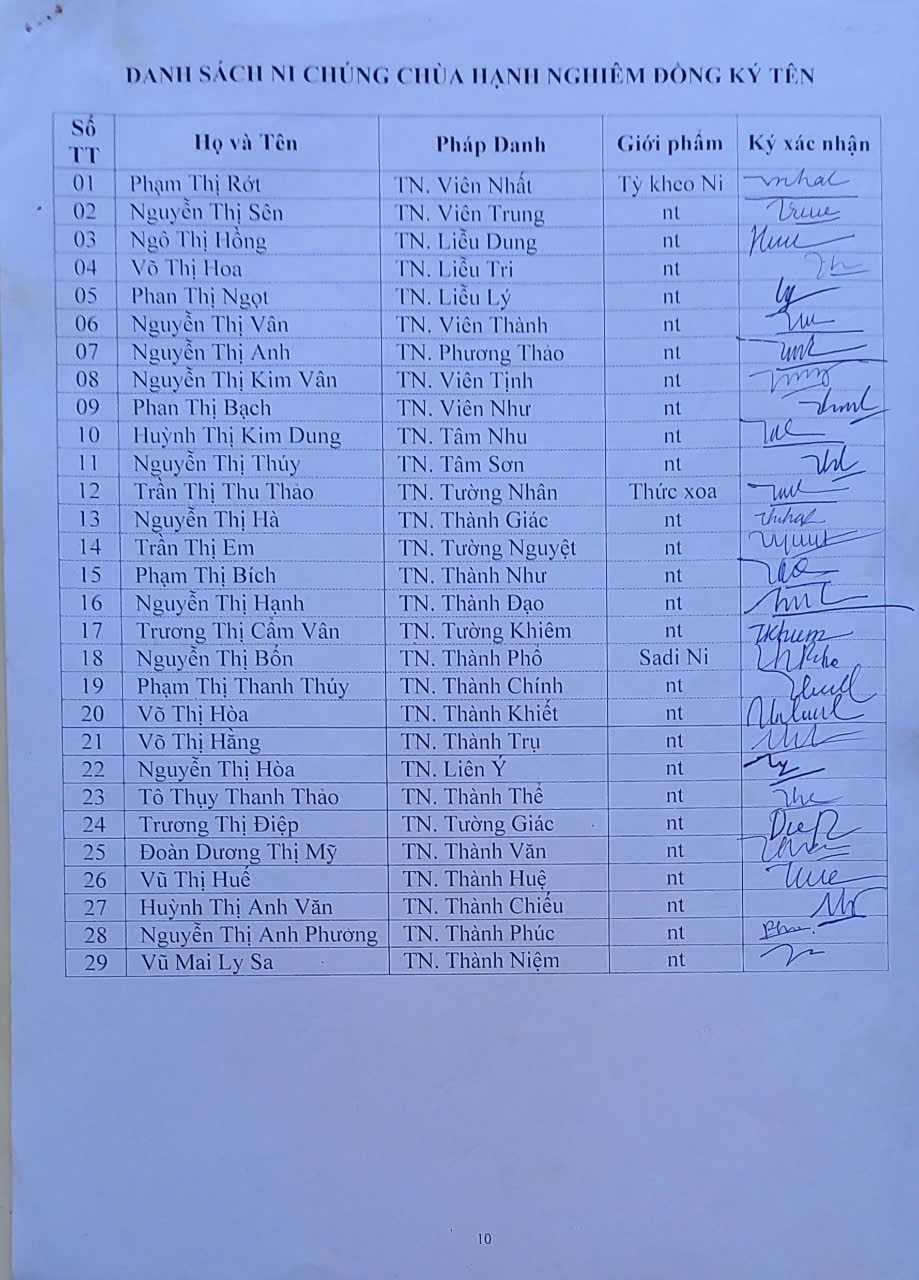 DANH SÁCH NI CHÚNG CHÙA HẠNH NGHIÊM ĐỒNG KÝ TÊN
Số TT Họ và Tên Pháp Danh Giới phẩm Ký xác nhận
01 Phạm Thị Rót TN. Viên Nhất Tỳ kheo Ni
02 Nguyễn Thị Sên TN. Viên Trung nt
03 Ngô Thị Hồng TN. Liễu Dung nt
04 Võ Thị Hoa TN. Liễu Tri nt
05 Phan Thị Ngọt TN. Liễu Lý nt ly
06 Nguyễn Thị Vân TN. Viên Thành nt
07 Nguyễn Thị Anh TN. Phương Thảo nt
08 Nguyễn Thị Kim Vân TN. Viên Tịnh nt
09 Phan Thị Bạch TN. Viên Như nt
10 Huỳnh Thị Kim Dung TN. Tâm Nhu nt
11 Nguyễn Thị Thúy TN. Tâm Sơn nt
12 Trần Thị Thu Thảo TN. Tường Nhân Thức xoa
13 Nguyễn Thị Hà TN. Thành Giác nt
14 Trần Thị Em TN. Tường Nguyệt nt
15 Phạm Thị Bích TN. Thành Như nt
16 Nguyễn Thị Hạnh TN. Thành Đạo nt
17 Trương Thị Cẩm Vân TN. Tường Khiêm nt
18 Nguyễn Thị Bốn TN. Thành Phổ Sadi Ni
19 Phạm Thị Thanh Thúy TN. Thành Chính nt
20 Võ Thị Hòa TN. Thành Khiết nt
21 Võ Thị Hằng TN. Thành Trụ nt
22 Nguyễn Thị Hòa TN. Liên Ý nt
23 Tô Thụy Thanh Thảo TN. Thành Thể nt
24 Trương Thị Điệp TN. Tường Giác nt
25 Đoàn Dương Thị Mỹ TN. Thành Văn nt
26 Vũ Thị Huế TN. Thành Huệ nt
27 Huỳnh Thị Anh Văn TN. Thành Chiếu nt
28 Nguyễn Thị Anh Phương TN. Thành Phúc nt
29 Vũ Mai Ly Sa TN. Thành Niệm nt
10